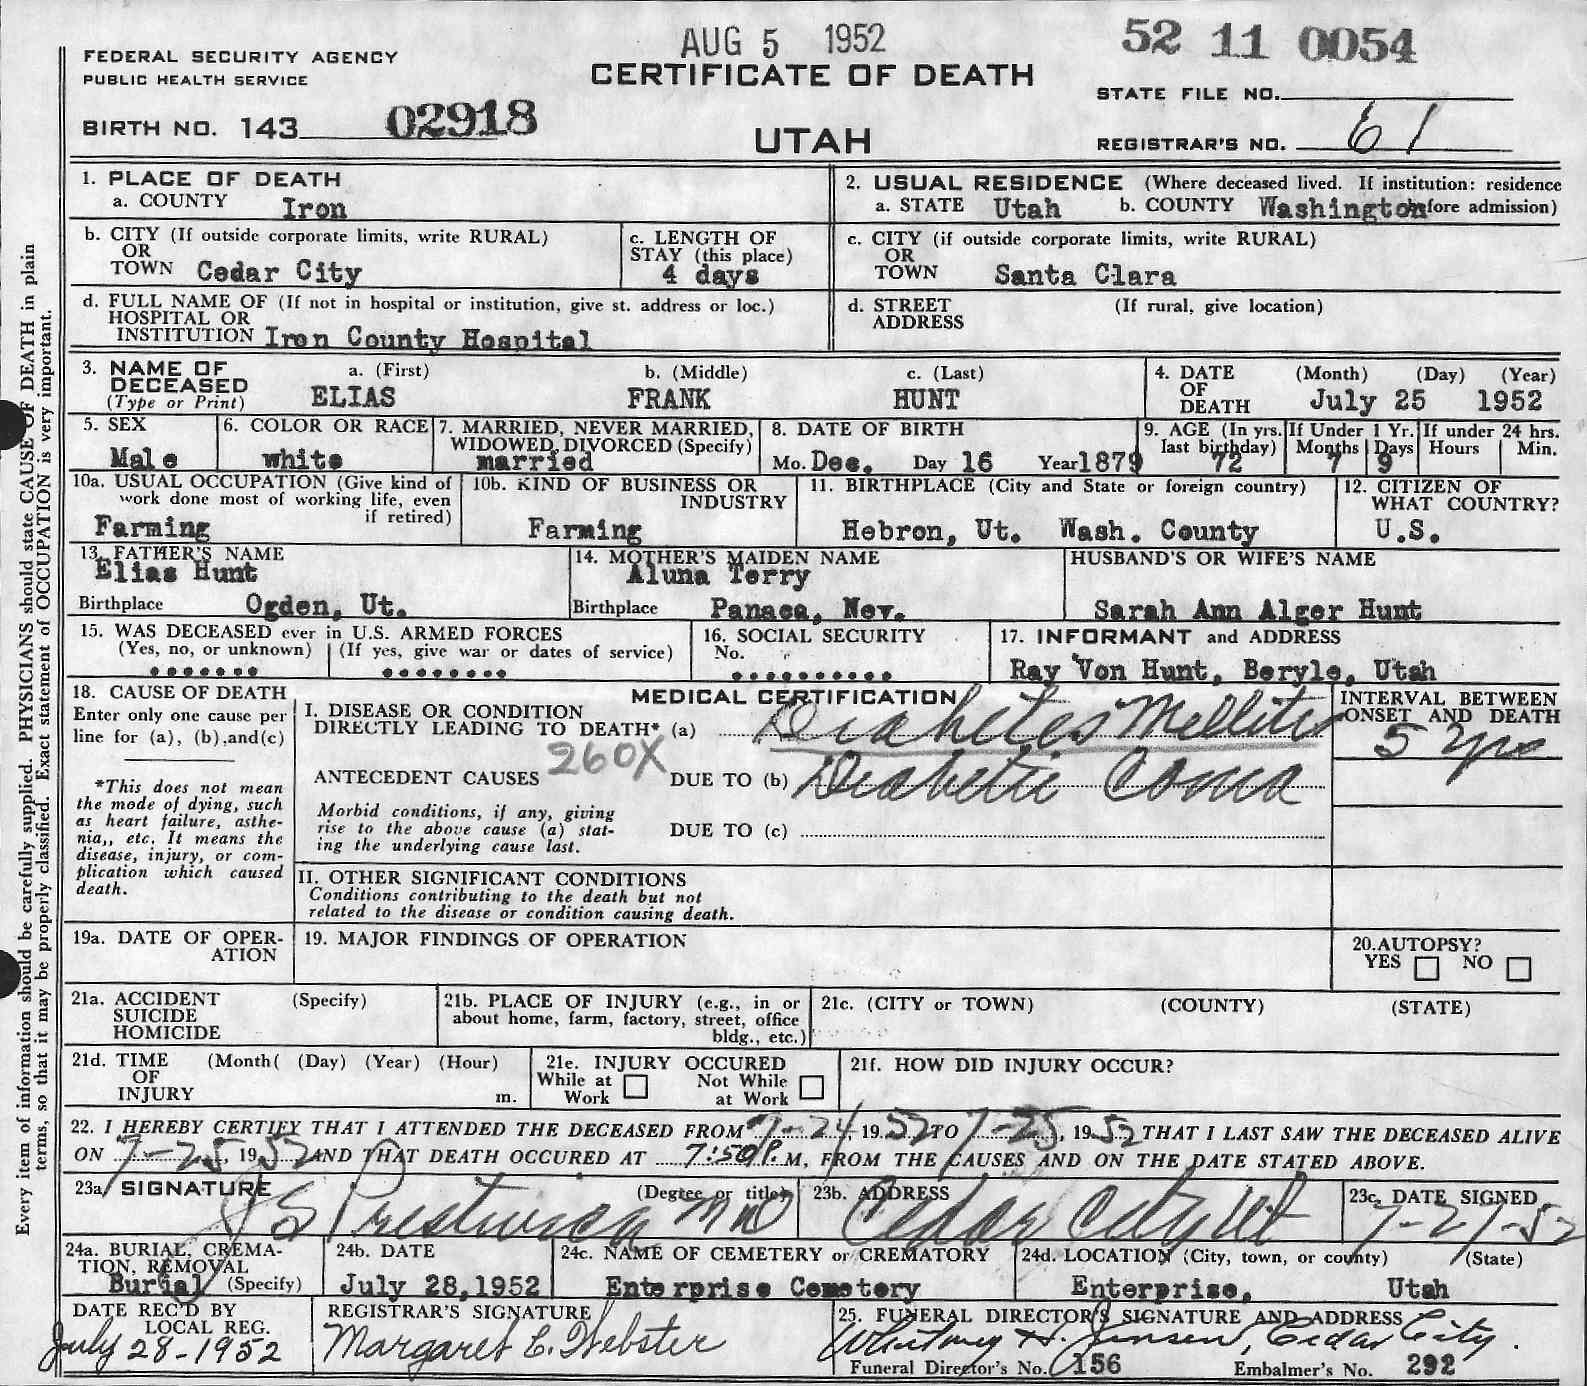 AUG 5 1952
52 11 0054
FEDERAL SECURITY AGENCY
PUBLIC HEALTH SERVICE
CERTIFICATE OF DEATH
STATE FILE NO.
BIRTH NO. 143 02918
UTAH
REGISTRAR'S NO. 61
1. PLACE OF DEATH
a. COUNTY Iron
2. USUAL RESIDENCE (Where deceased lived. If institution: residence
a. STATE Utah b. COUNTY Washington before admission)
b. CITY (If outside corporate limits, write RURAL)
OR
TOWN Cedar City
c. LENGTH OF
STAY (this place)
4 days
c. CITY (if outside corporate limits, write RURAL)
OR
TOWN Santa Clara
d. FULL NAME OF (If not in hospital or institution, give st. address or loc.)
HOSPITAL OR
INSTITUTION Iron County Hospital
d. STREET (If rural, give location)
ADDRESS
3. NAME OF DECEASED
(Type or Print)
a. (First) b. (Middle) c. (Last)
ELIAS FRANK HUNT
4. DATE OF DEATH (Month) (Day) (Year)
July 25 1952
5. SEX
Male
6. COLOR OR RACE
white
7. MARRIED, NEVER MARRIED,
WIDOWED, DIVORCED (Specify)
married
8. DATE OF BIRTH
Mo. Dec. Day 16 Year 1879
9. AGE (In yrs. last birthday)
72
If Under 1 Yr.
Months Days
7 9
If under 24 hrs.
Hours Min.
10a. USUAL OCCUPATION (Give kind of
work done most of working life, even
if retired)
Farming
10b. KIND OF BUSINESS OR
INDUSTRY
Farming
11. BIRTHPLACE (City and State or foreign country)
Hebron, Ut. Wash. County
12. CITIZEN OF
WHAT COUNTRY?
U.S.
13. FATHER'S NAME
Elias Hunt
Birthplace Ogden, Ut.
14. MOTHER'S MAIDEN NAME
Aluna Terry
Birthplace Panaca, Nev.
HUSBAND'S OR WIFE'S NAME
Sarah Ann Alger Hunt
15. WAS DECEASED ever in U.S. ARMED FORCES
(Yes, no, or unknown) (If yes, give war or dates of service)
16. SOCIAL SECURITY
No.
17. INFORMANT and ADDRESS
Ray Von Hunt, Beryle, Utah
18. CAUSE OF DEATH
Enter only one cause per
line for (a), (b), and (c)
*This does not mean
the mode of dying, such
as heart failure, asthe-
nia,, etc. It means the
disease, injury, or com-
plication which caused
death.
MEDICAL CERTIFICATION
I. DISEASE OR CONDITION
DIRECTLY LEADING TO DEATH* (a) Diabetes Mellitus
260X
ANTECEDENT CAUSES DUE TO (b) Diabetic Coma
Morbid conditions, if any, giving
rise to the above cause (a) stat-
ing the underlying cause last.
DUE TO (c)
INTERVAL BETWEEN
ONSET AND DEATH
5 yrs
II. OTHER SIGNIFICANT CONDITIONS
Conditions contributing to the death but not
related to the disease or condition causing death.
19a. DATE OF OPER-
ATION
19. MAJOR FINDINGS OF OPERATION
20. AUTOPSY?
YES NO
21a. ACCIDENT (Specify)
SUICIDE
HOMICIDE
21b. PLACE OF INJURY (e.g., in or
about home, farm, factory, street, office
bldg., etc.)
21c. (CITY or TOWN) (COUNTY) (STATE)
21d. TIME (Month( (Day) (Year) (Hour)
OF
INJURY m.
21e. INJURY OCCURED
While at Work Not While at Work
21f. HOW DID INJURY OCCUR?
22. I HEREBY CERTIFY THAT I ATTENDED THE DECEASED FROM 7-24, 1952 TO 7-25, 1952 THAT I LAST SAW THE DECEASED ALIVE
ON 7-25, 1952 AND THAT DEATH OCCURED AT 7:50 P.M, FROM THE CAUSES AND ON THE DATE STATED ABOVE.
23a. SIGNATURE (Degree or title)
J S Prestwich MD
23b. ADDRESS
Cedar City Ut
23c. DATE SIGNED
7-27-52
24a. BURIAL, CREMA-
TION, REMOVAL
Burial (Specify)
24b. DATE
July 28, 1952
24c. NAME OF CEMETERY or CREMATORY
Enterprise Cemetery
24d. LOCATION (City, town, or county) (State)
Enterprise, Utah
DATE REC'D BY
LOCAL REG.
July 28-1952
REGISTRAR'S SIGNATURE
Margaret C. Webster
25. FUNERAL DIRECTOR'S SIGNATURE AND ADDRESS
Whitney H. Jensen, Cedar City.
Funeral Director's No. 156 Embalmer's No. 292
Every item of information should be carefully supplied. PHYSICIANS should state CAUSE OF DEATH in plain
terms, so that it may be properly classified. Exact statement of OCCUPATION is very important.